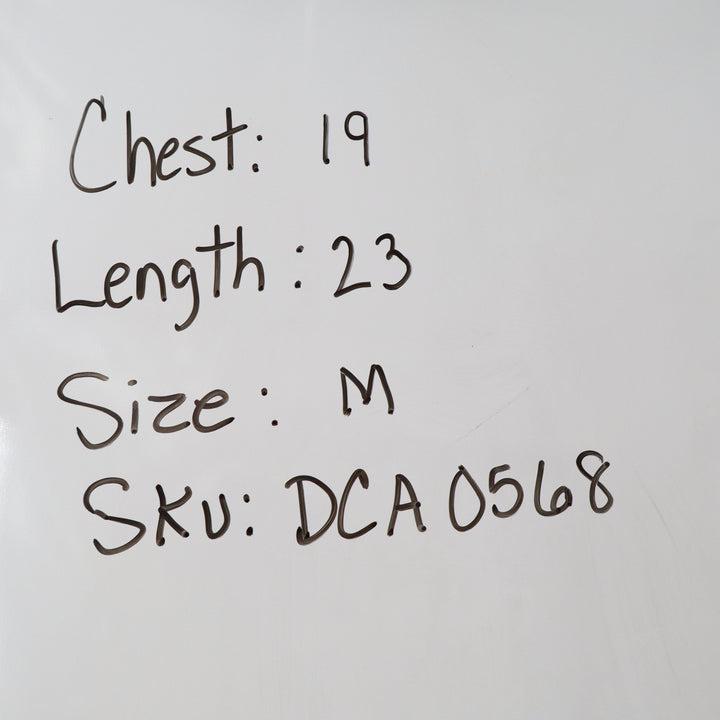 Chest: 19
Length: 23
Size: M
SKU: DCA0568